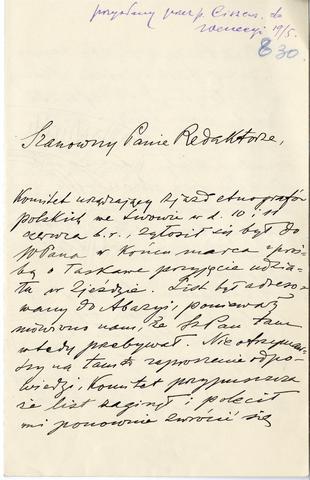 przysłany przez p. Ciszew. do
Wenecyi 19/5.
830.
Szanowny Panie Redaktorze,
Komitet urządzający zjazd etnografów
polskich we Lwowie w d. 10 i 11
czerwca b.r., zgłosił się był do
WPana w końcu marca z proś-
bą o łaskawe przyjęcie udzia-
łu w Zjeździe. List był adreso-
wany do Abazyi, ponieważ
mówiono nam, że SzPan tam
wtedy przebywał. Nie otrzymaw-
szy na tamto zaproszenie odpo-
wiedzi, Komitet przypuszcza
że list zaginął i polecił
mi ponownie zwrócić się